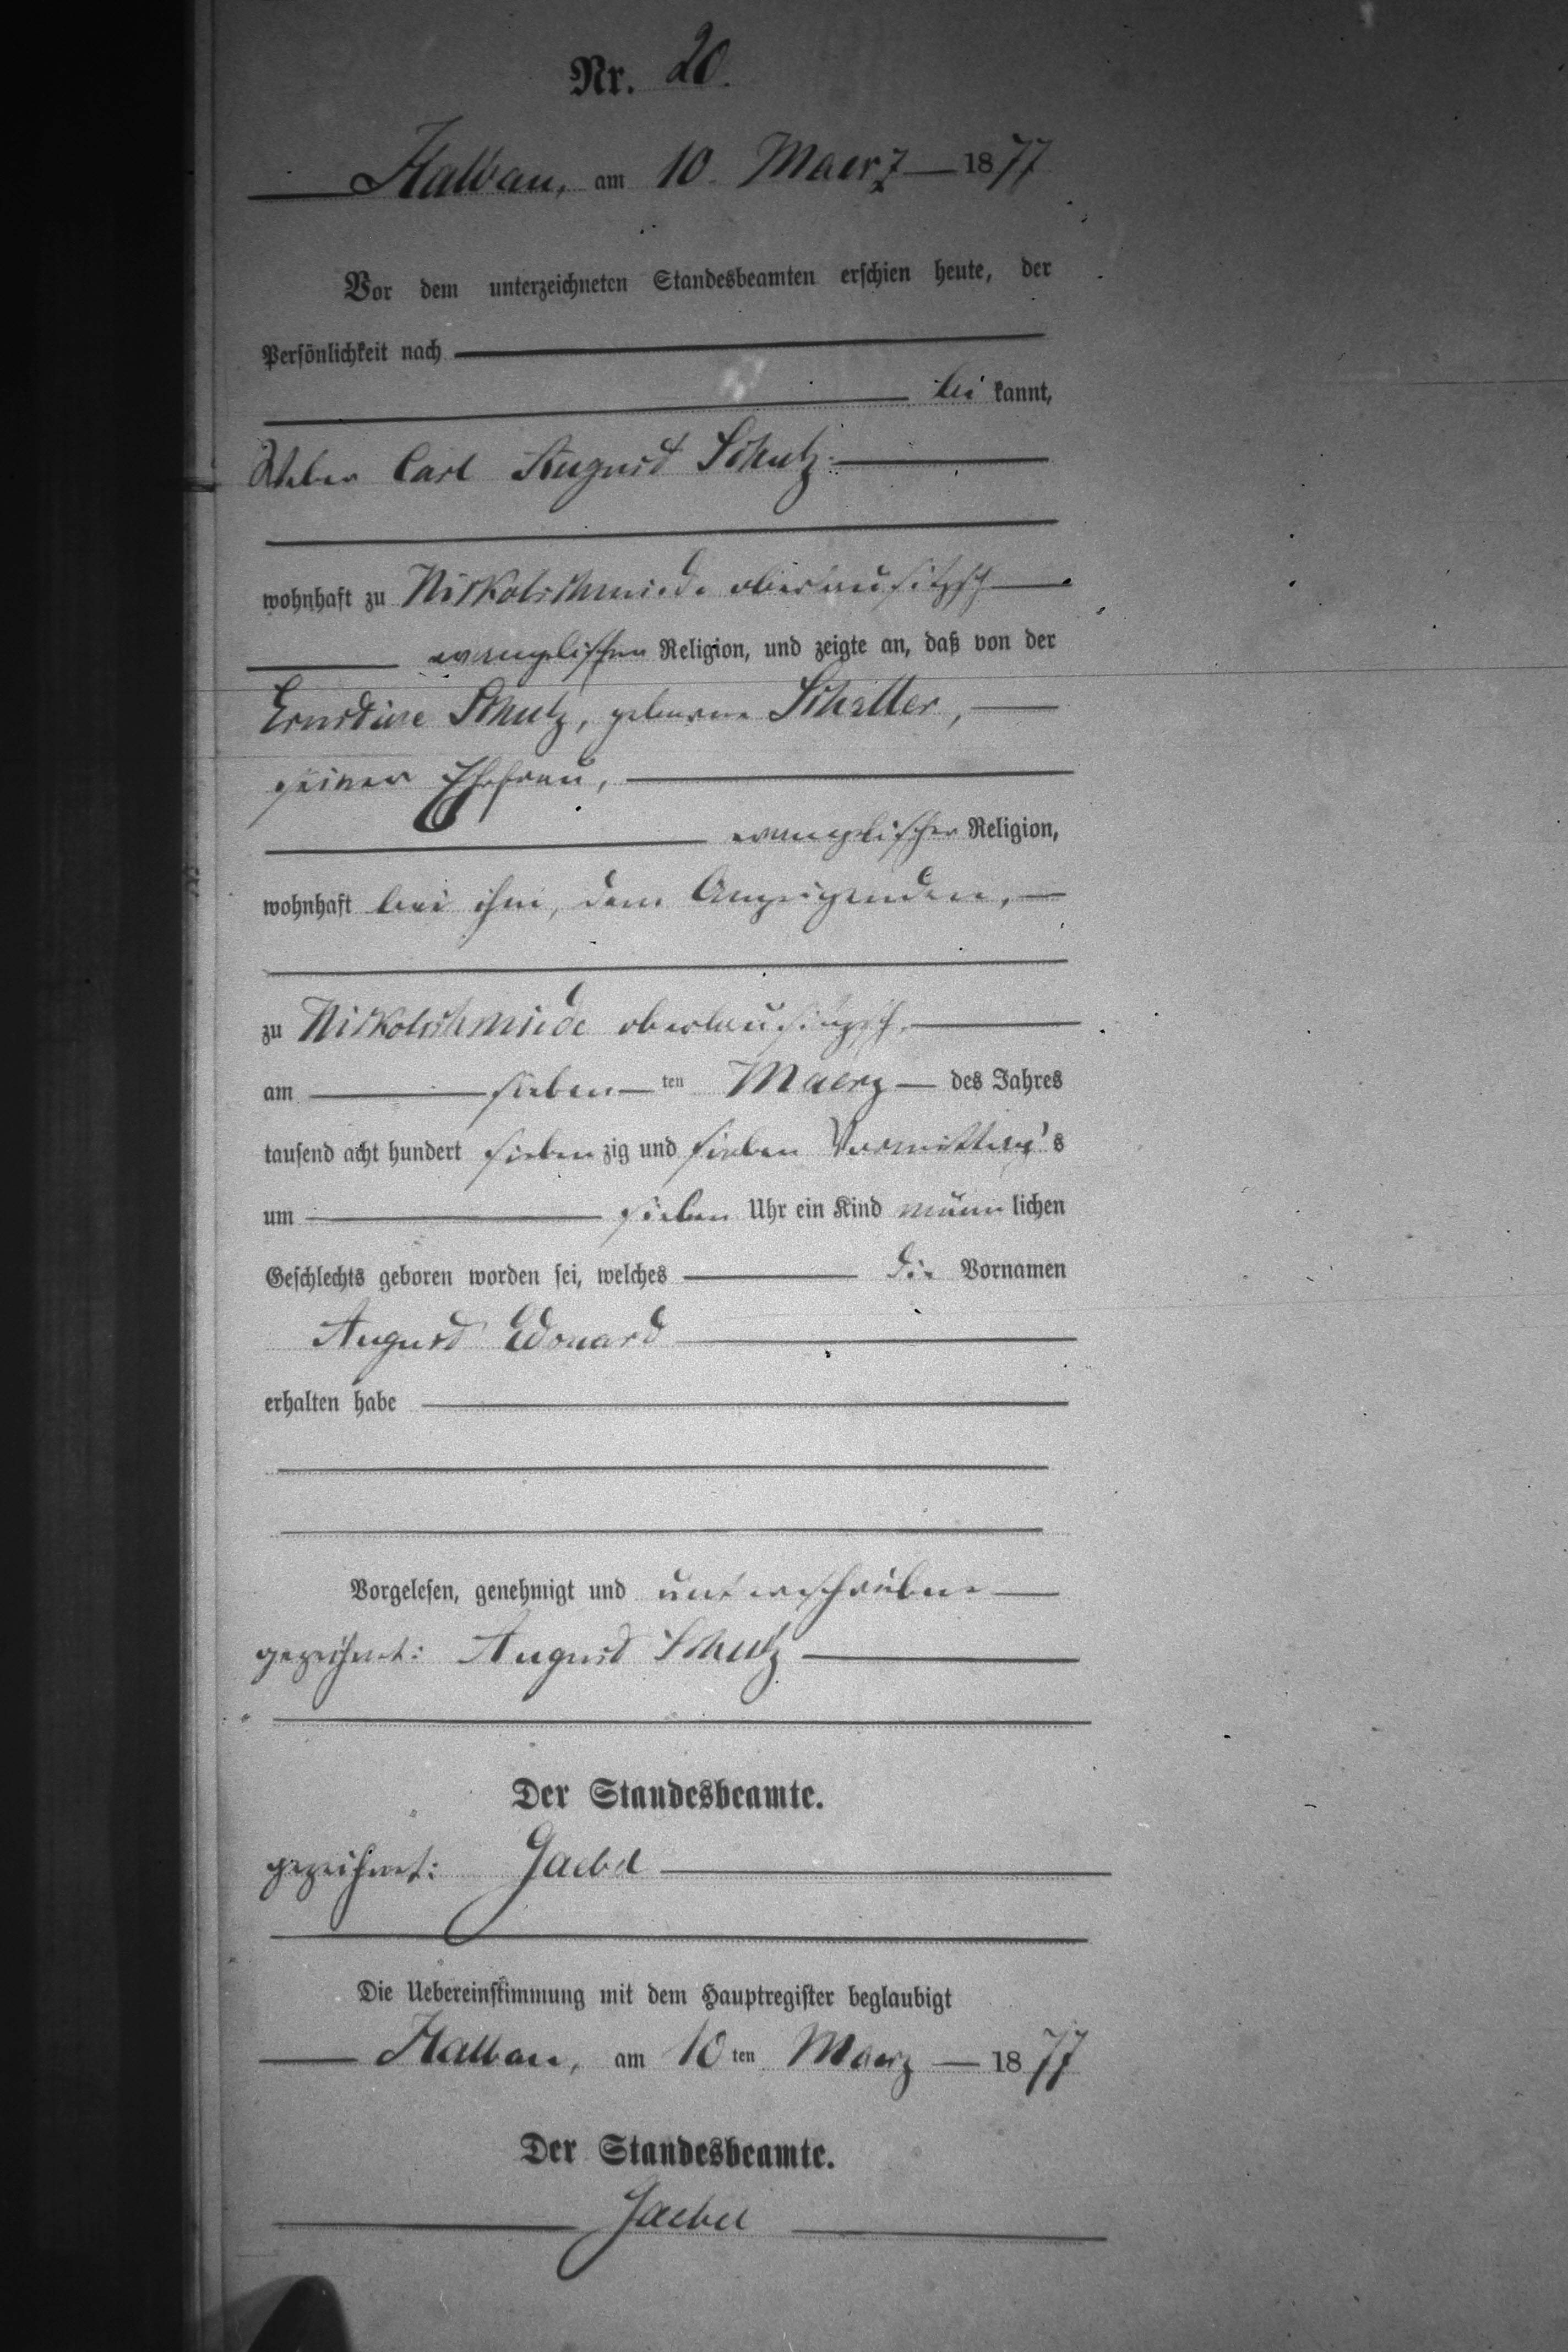 Nr. 20.
Halbau, am 10. Maerz 1877
Vor dem unterzeichneten Standesbeamten erschien heute, der
Persönlichkeit nach
be kannt,
Weber Carl August Schulz.
wohnhaft zu Nikolschmiede oberlausitzsch
evangelischer Religion, und zeigte an, daß von der
Ernstine Schulz, geborene Schaller,
seiner Ehefrau,
evangelischer Religion,
wohnhaft bei ihm, dem Anzeigenden,
zu Nikolschmiede oberlausitzsch,
am sieben ten Maerz des Jahres
tausend acht hundert sieben zig und sieben Vormittag's
um sieben Uhr ein Kind männ lichen
Geschlechts geboren worden sei, welches die Vornamen
August Edouard
erhalten habe
Vorgelesen, genehmigt und unterschrieben
gezeichnet: August Schulz
Der Standesbeamte.
gezeichnet: Jaebel
Die Uebereinstimmung mit dem Hauptregister beglaubigt
Halbau, am 10 ten Maerz 1877
Der Standesbeamte.
Jaebel